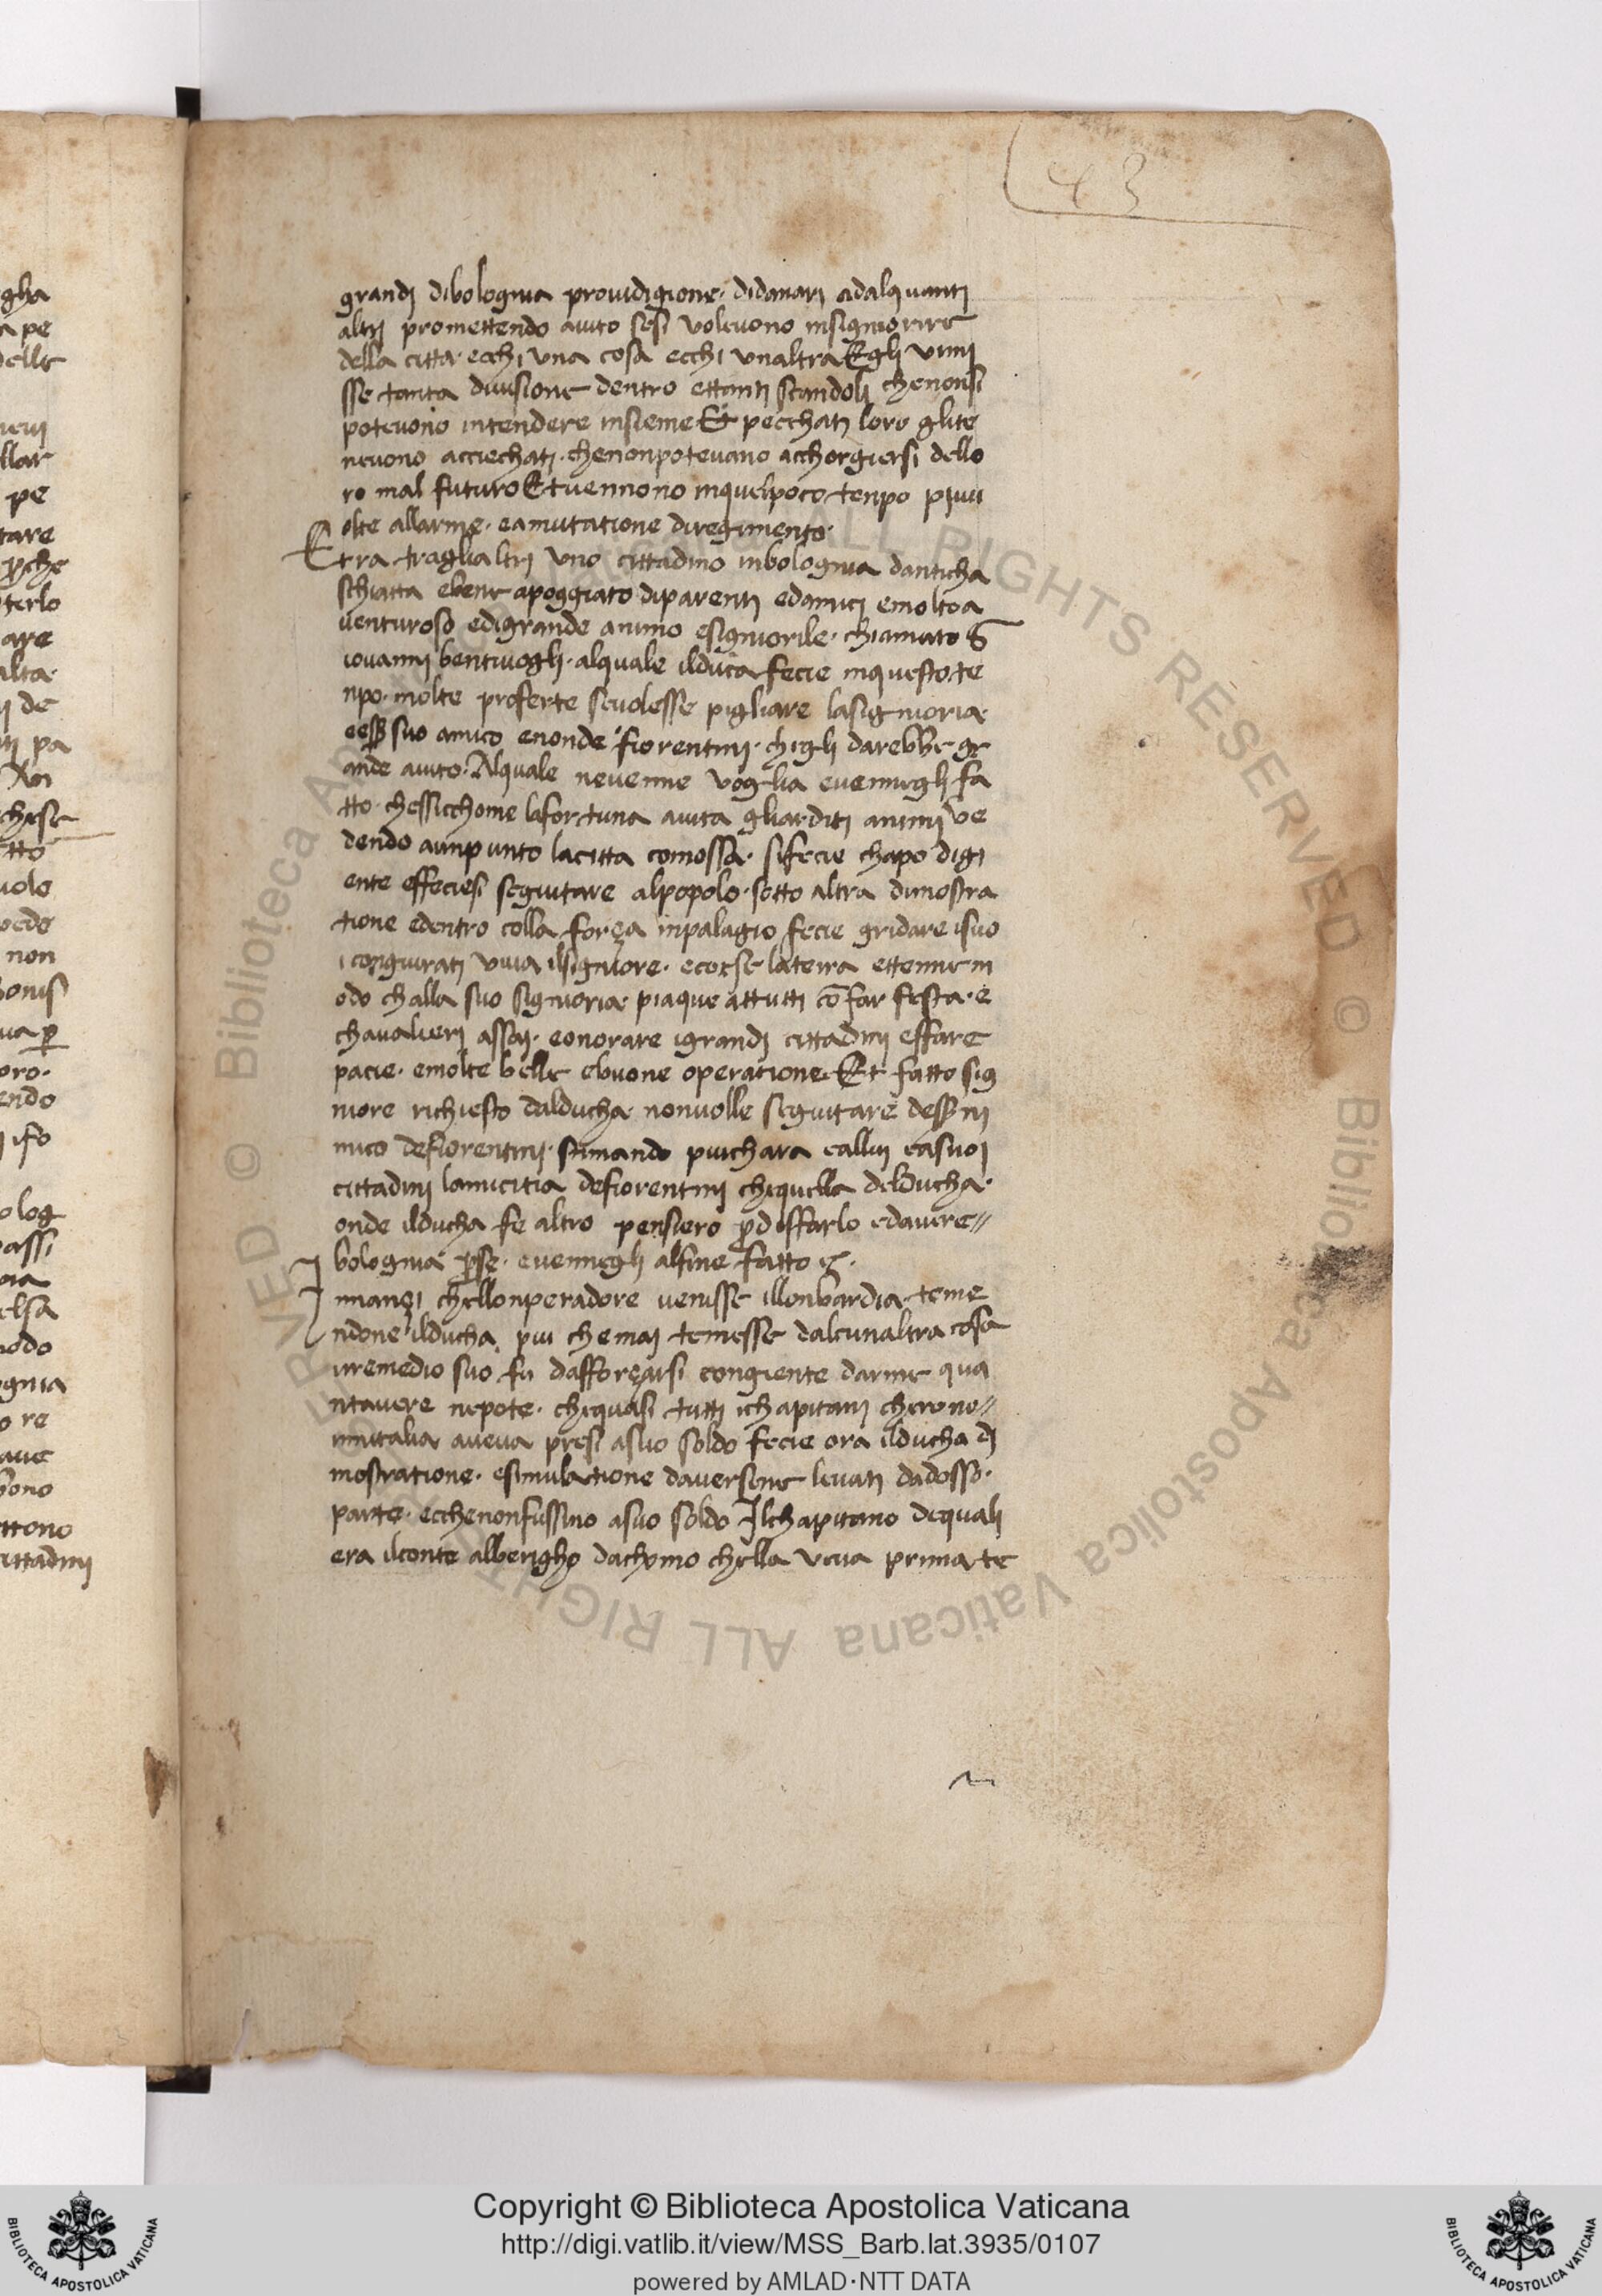 43
grandj dibolognia providigione · didanarj adalquantj
altrj promettendo aiuto sesi volevono insigniorire
della citta · ecchi una cosa ecchi unaltra Egli vimj
sse tanta divisione dentro ettantj scandolj chenonsi
potevono intendere insieme Et pecchatj loro glite
nevono acciechatj · chenonpotevano acchorgiersi dello
ro mal futuro Etvennono inquelpoco tenpo piuu
olte allarme · eamutatione diregimento ·
Era traglialtrj uno cittadino inbolognia danticha
schiatta ebene apoggiato diparentj edamicj emoltoa
venturoso edigrande animo esigniorile · chiamato G
iovannj bentivoglj · alquale ilduca fecie inquesto te
npo · molte proferte sevolesse pigliare lasignioria ·
suo amico enonde fiorentinj · chiglj darebbe gr
ande aiuto · Alquale nevenne voglia evenneglj fa
tto · chessicchome lafortuna aiuta gliarditj animj ve
dendo aunpunto lacitta comossa · sifecie chapo digi
ente effeciesi seguitare alpopolo · sotto altra dimostra
tione edentro colla força inpalagio fecie gridare isuo
i congiuratj viva ilsigniore · ecorse laterra ettenne m
odo challa suo signioria · piaque attuttj cō far festa · e
chavalierj assaj · eonorare igrandj cittadinj effare
pacie · emolte belle ebuone operatione Et fatto sig
niore richiesto dalducha · nonvolle seguitare ni
mico defiorentinj · stimando piuchara eallui easuoj
cittadinj lamicitia defiorentinj chequella delducha ·
onde ilducha fe altro pensiero pdisffarlo edavere //
bolognia pse · evenneglj alfine fatto
Innançi chellonperadore venisse illonbardia teme
ndone ilducha piu chemaj temesse dalcunaltra cosa
irremedio suo fu dafforçarsi congiente darme qua
ntavere nepote · chequasi tuttj ichapitanj cherono //
initalia aveva presi asuo soldo fecie ora ilducha dj
mostratione · esimulatione daversene levatj dadosso ·
parte · ecchenonfussino asuo soldo Ilchapitano dequalj
era ilconte alberigho dachonio chella prima te
gha
a pe
delle
llar
pe
tare
pche
terlo
are
alta ·
de
pa
non
oro ·
endo
olog
assi
odo
gnia
re
ave
bono
ttono
cittadinj
© Biblioteca Apostolica Vaticana ALL RIGHTS RESERVED
© Biblioteca Apostolica Vaticana ALL RIGHTS RESERVED
Copyright © Biblioteca Apostolica Vaticana
http://digi.vatlib.it/view/MSS_Barb.lat.3935/0107
powered by AMLAD·NTT DATA
BIBLIOTECA APOSTOLICA VATICANA
BIBLIOTECA APOSTOLICA VATICANA